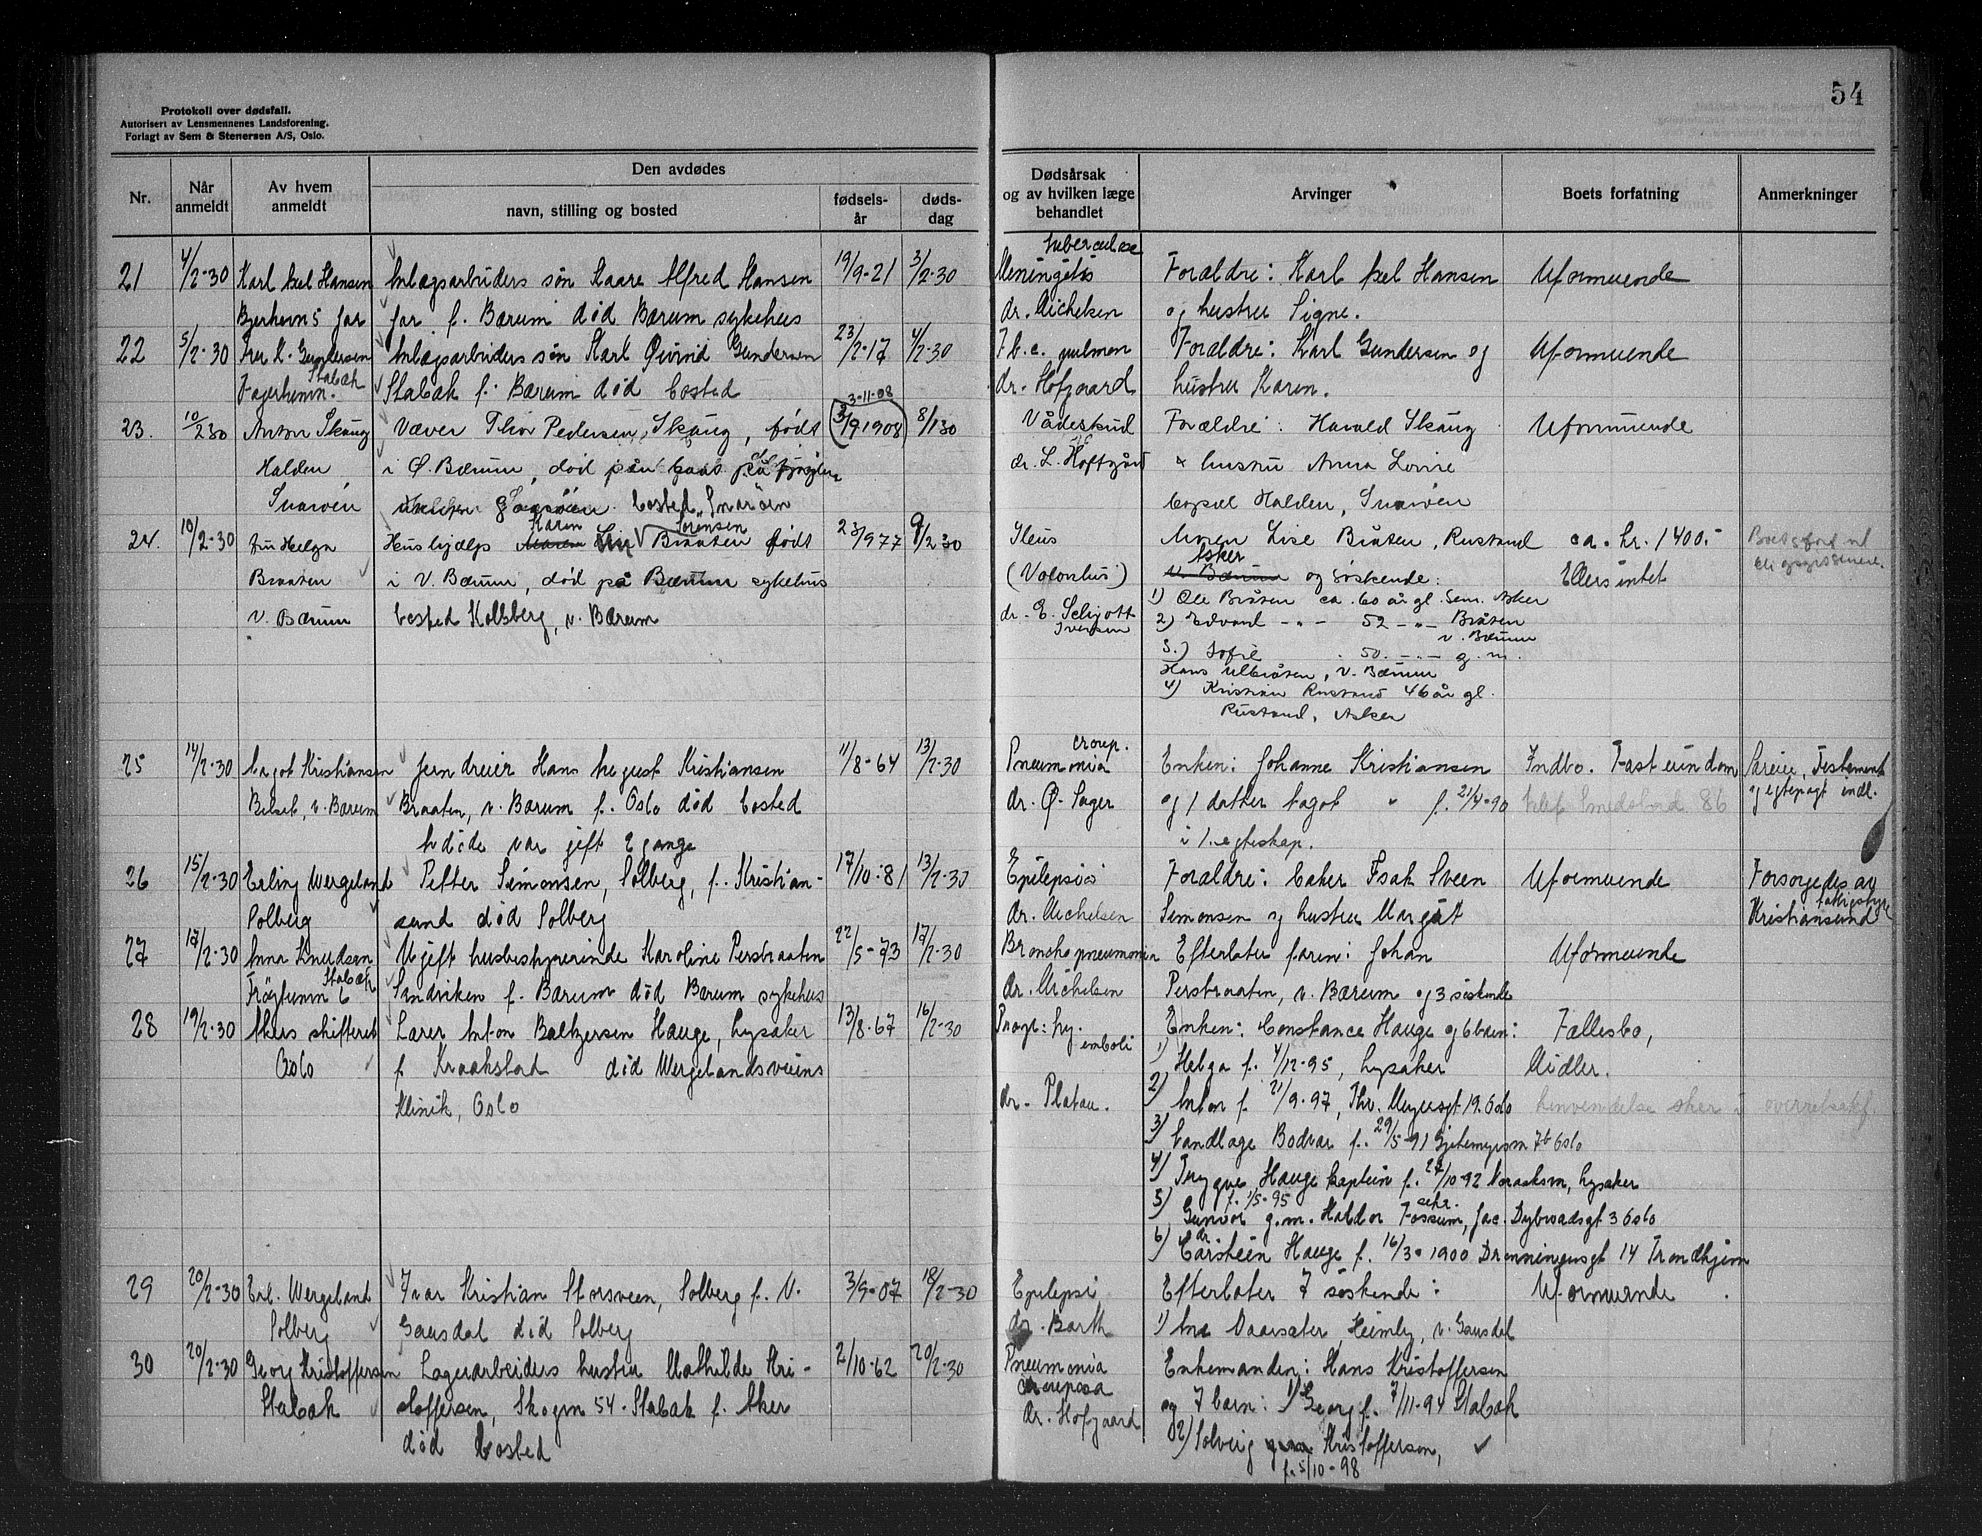 54
Protokoll over dødsfall.
Autorisert av Lensmennenes Landsforening.
Forlagt av Sem & Stenersen A/S, Oslo.
Nr.
Når anmeldt
Av hvem anmeldt
Den avdødes
navn, stilling og bosted
fødsels-år
døds-dag
Dødsårsak og av hvilken læge behandlet
Arvinger
Boets forfatning
Anmerkninger
21 4/2-30 Karl Axel Hansen Anlægsarbeiders søn Kaare Alfred Hansen 19/9-21 3/2-30 Meningitis tuberculose Forældre: Karl Axel Hansen Uformuende
Bjerkevn 5 Jar Jar f. Bærum død Bærum sykehus dr. Michelsen og hustru Signe.
22 5/2-30 Fru K. Gundersen Anlægsarbeiders søn Karl Øivind Gundersen 23/2-17 4/2-30 T.b.c. pulmon Forældre: Karl Gundersen og Uformuende
Fagerheimvn. Stabæk Stabæk f. Bærum død bosted dr. Hofgaard hustru Karen.
3-11-08
23. 10/2 30 Anton Skaug Væver Thor Pedersen Skaug, født 3/9 1908 8/1 30 Vådeskud Forældre: Harald Skaug Uformuende
Halden i Ø. Bærum, død dr. L. Hoffgård & hustru Anna Lovise
Snarøen bosted Snarøen bopel Halden, Snarøen
24. 10/2-30 Fru Helga Hushjælp Karen Braaten Sørensen født 23/9 77 9/2 30 Ileus Moren Lise Bråten, Rustand ca. kr. 1400.-
Braaten i V. Bærum, død på Bærum sykehus (Volvulus) V. Bærum Asker og søskende: Ellers intet
V. Bærum bosted Kolsberg, v. Bærum dr. E. Schjøtt Iversen 1) Ole Bråten ca. 60 år gl. Sem. Asker
2) Edvard -"- 52 -"- Bråten v. Bærum
3.) Sofie 50. -"- g.m.
Hans Ulbråten, V. Bærum
4) Kristian Rustand 46 år gl.
Rustand, Asker
25 14/2-30 Aagot Kristiansen Jerndreier Hans August Kristiansen 11/8-64 13/2-30 Pneumonia croup. Enken: Johanne Kristiansen Indbo. Fast eiendom Særeie, Testament
Belset, v. Bærum Braaten, v. Bærum f. Oslo død bosted dr. Ø. Sager og 1 datter Aagot " f. 21/4-90 og egtepagt indl.
Avdøde var gift 2 gange i 1. egteskap.
26 15/2-30 Erling Wergeland Petter Simonsen, Solberg, f. Kristian- 17/10-81 13/2-30 Epilepsi Forældre: baker Isak Sveen Uformuende Forsørgedes av
Solberg sund død Solberg dr. Michelsen Simonsen og hustru Margit Kristiansund fattigstyre
27 17/2-30 Anna Knudsen Ugift husbestyrerinde Karoline Perstraaten 22/5-73 17/2-30 Bronchopneumonia Efterlater faren: Johan Uformuende
Stabæk Sandviken f. Bærum død Bærum sykehus dr. Michelsen Perstraaten, v. Bærum og 3 søskende
28 19/2-30 Akers skifteret Lærer Anton Baltzersen Hauge, Lysaker 13/8-67 16/2-30 emboli Enken: Constance Hauge og 6 barn: Fællesbo,
Oslo f. Kraakstad død Wergelandsveiens 1) Helga f. 4/12-95, Lysaker Midler.
Klinik, Oslo dr. Platou. 2) Anton f. 21/9-97, Thv. Meyersgt 19. Oslo henvendelse sker i overretssakf.
3) Landlæge Bodvar f. 29/5-91 Gjetemyrsvn 76 Oslo
4) Trygve Hauge kaptein f. 27/10-92 Lysaker
f. 1/5-95
5) Gunvor g.m. Haldor Fossum, sekr. Jac. Dybwadsgt 3 Oslo
6) dr. Carsten Hauge f. 16/3-1900 Dronningensgt 14 Trondhjem
29 20/2-30 Erl. Wergeland Ivar Kristian Storsveen, Solberg f. V. 3/9-07 18/2-30 Epilepsi Efterlater 7 søskende: Uformuende.
Solberg Gausdal død Solberg dr. Barth 1) Heimly, v. Gausdal
30 20/2-30 Georg Kristoffersen Lagerarbeiders hustru Mathilde Kri- 2/10-62 20/2-30 Pneumonia Enkemanden: Hans Kristoffersen
Stabæk stoffersen, Skogvn 54. Stabæk f. Aker og 7 barn: 1) Georg f. 7/11-94 Stabæk
død bosted dr. Hofgaard 2) Solveig Kristoffersen,
f. 5/10-98